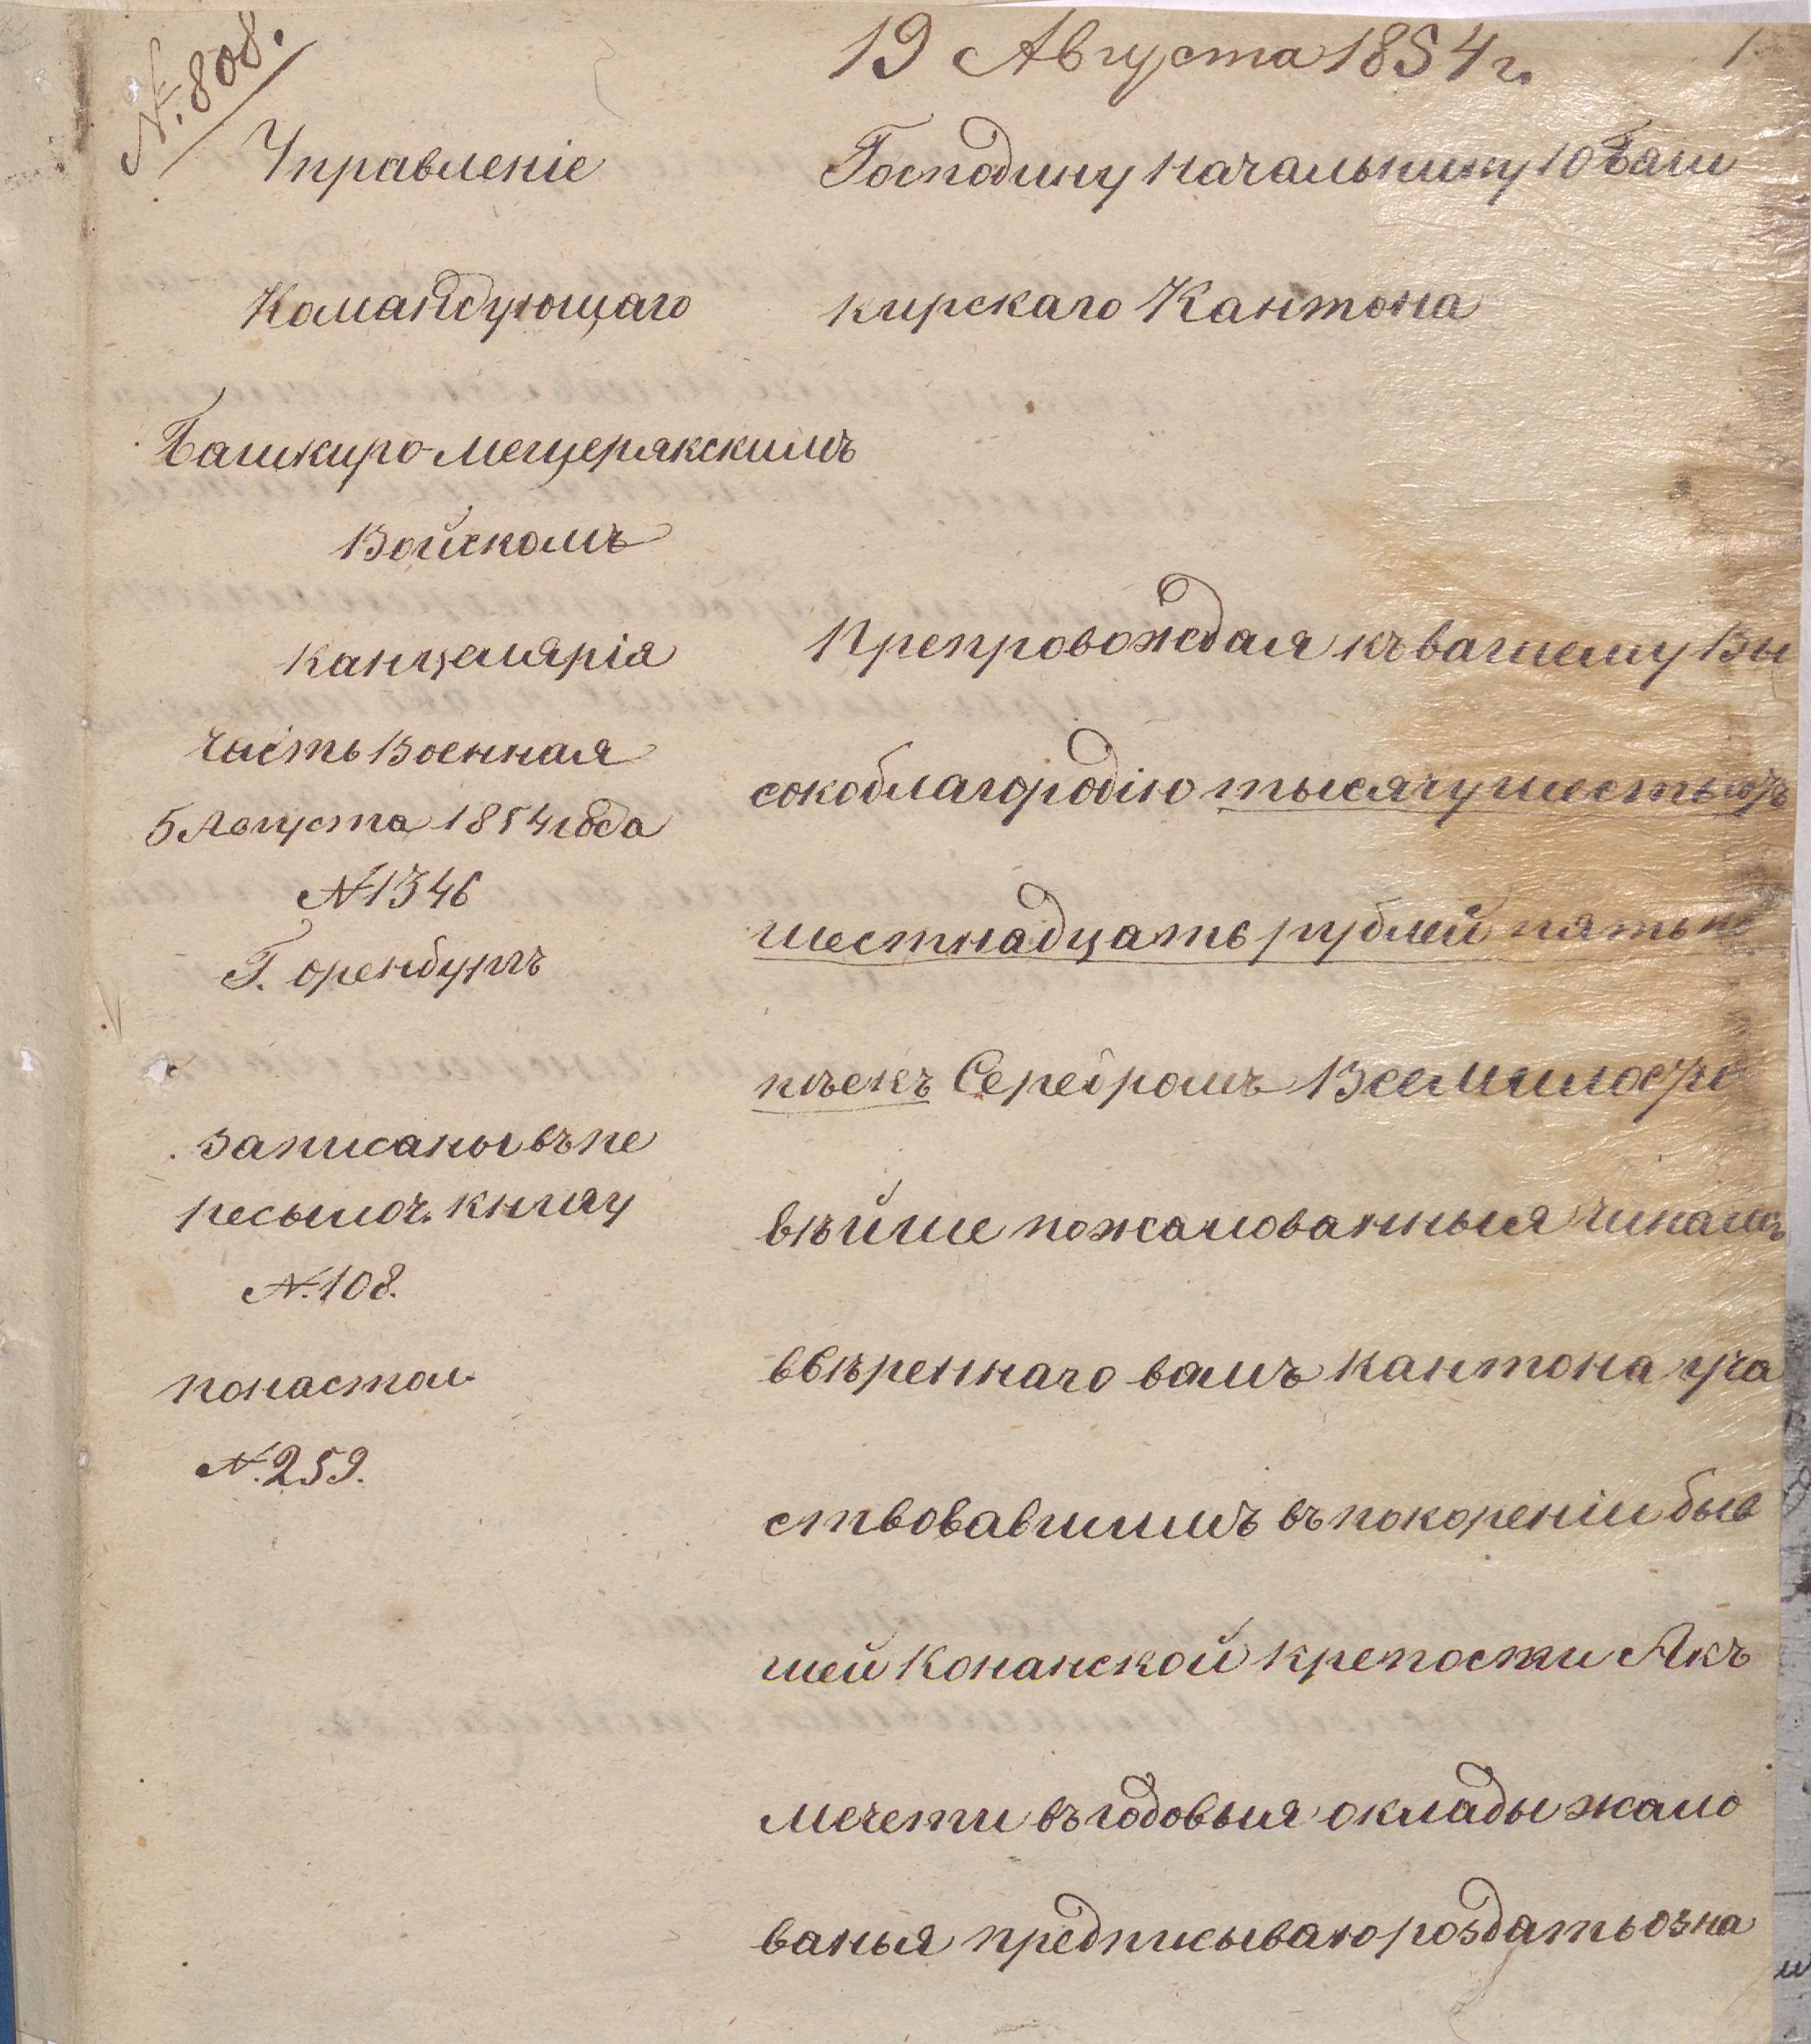 №. 808.
19 Августа 1854 г.
1.
Управленіе
Командующаго
Башкиро-мещерякскимъ
Войскомъ
канцелярія
часть Военная
5 Августа 1854 года
№ 1346
Г. Оренбургъ
записаны въ пе
ресылоч. книгу
№. 108.
по настол.
№. 259.
Господину начальнику 10 Баш
кирскаго Кантона
Препровождая къ вашему Вы
сокоблагородію тысячу шестьсотъ
шестнадцать рублей пять ко
пѣекъ Серебромъ Всемилости
вѣйше пожалованныя чинамъ
ввѣреннаго вамъ кантона уча
ствовавшимъ въ покореніи быв
шей Конанской крепости Акъ
мечети въ годовыя оклады жало
ванья предписываю роздать озна